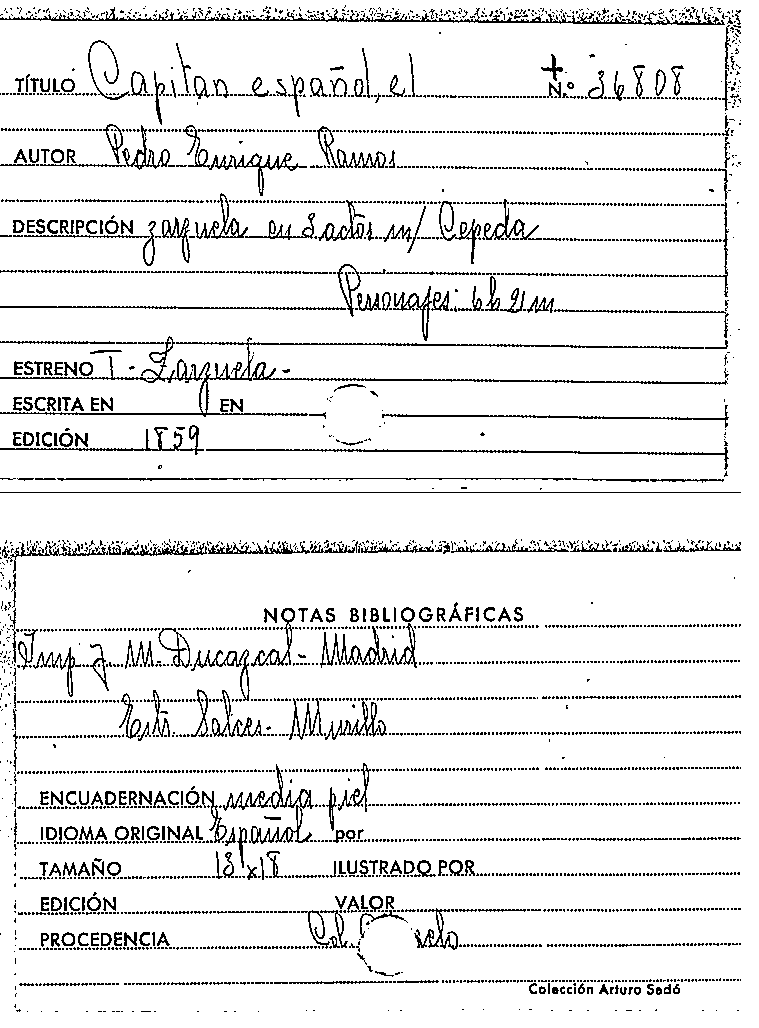 TÍTULO Capitan español, el + N.º 36808
AUTOR Pedro Enrique Ramos
DESCRIPCIÓN zarzuela en 3 actos m/ Cepeda
Personajes: 6h 2m
ESTRENO T. Zarzuela-
ESCRITA EN EN
EDICIÓN 1859
NOTAS BIBLIOGRÁFICAS
Imp J. M. Ducazcal - Madrid
Estr. Salces- Murillo
ENCUADERNACIÓN media piel
IDIOMA ORIGINAL Español por
TAMAÑO 13x18 ILUSTRADO POR
EDICIÓN VALOR
PROCEDENCIA Col.
Colección Arturo Sedó